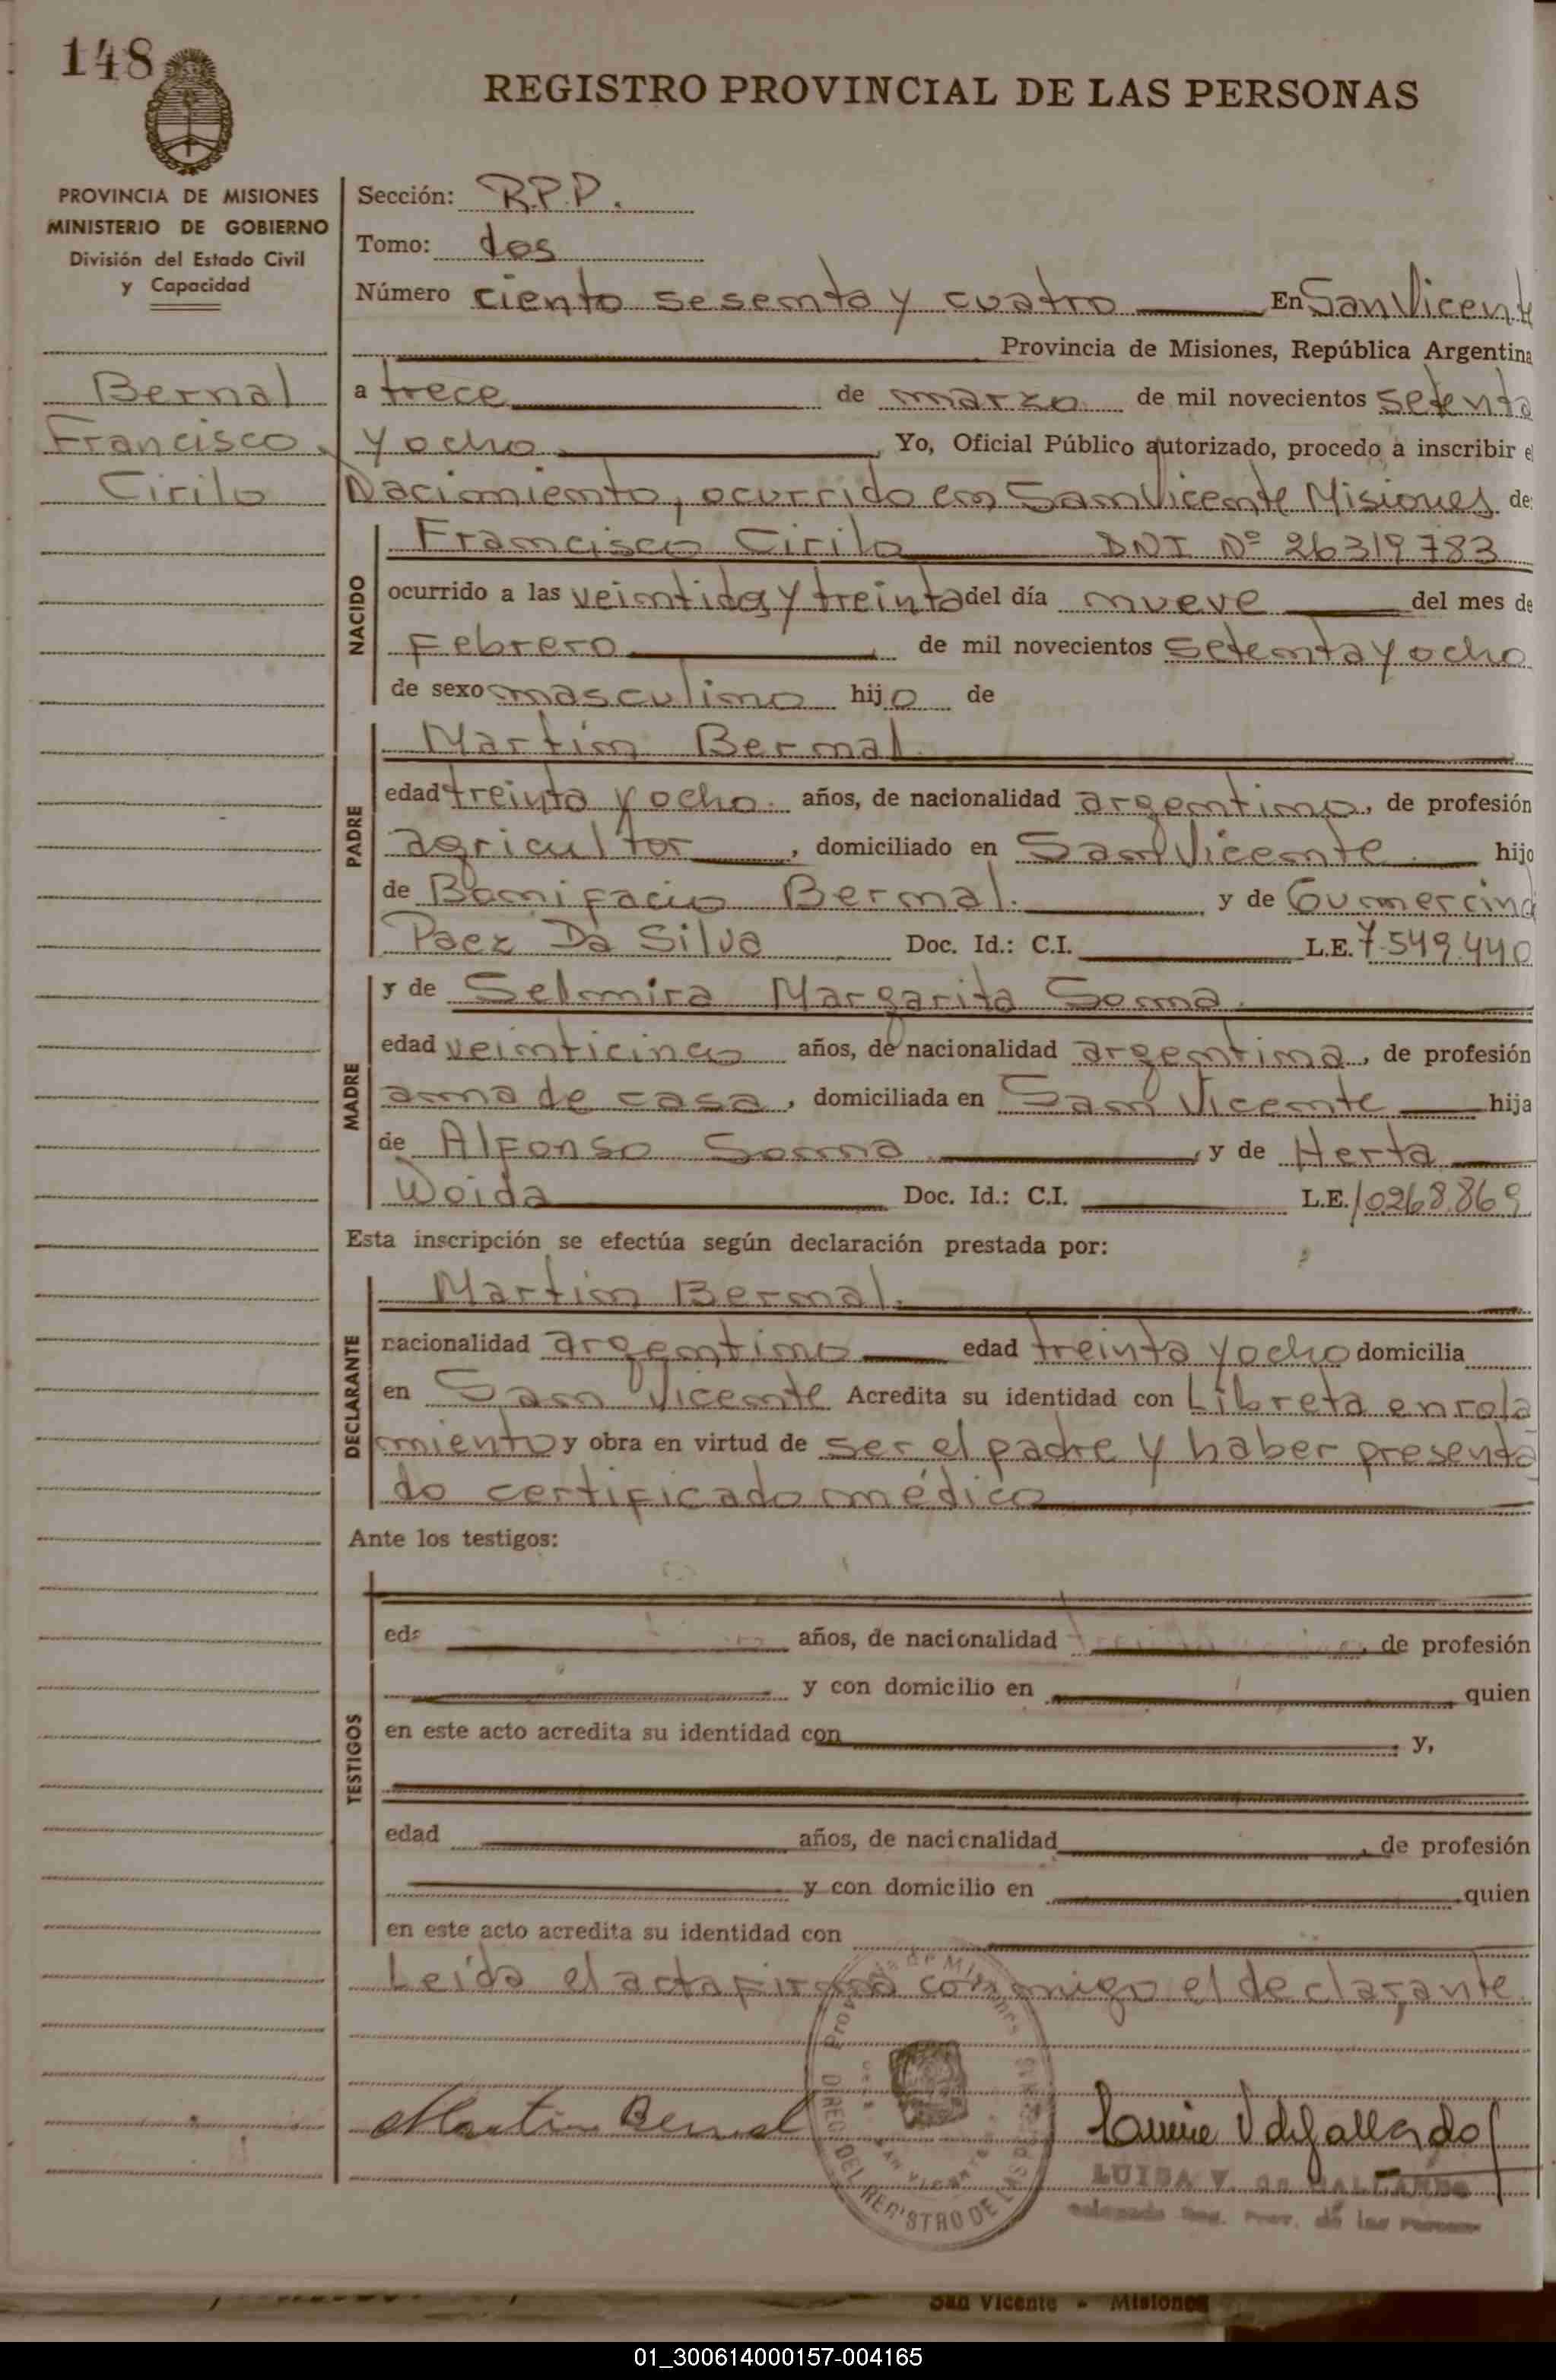 148
REGISTRO PROVINCIAL DE LAS PERSONAS
PROVINCIA DE MISIONES
MINISTERIO DE GOBIERNO
División del Estado Civil
y Capacidad
Bernal
Francisco
Cirilo
Sección: R.P.P.
Tomo: dos
Número ciento sesenta y cuatro En San Vicent
Provincia de Misiones, República Argentina
a trece de marzo de mil novecientos setenta
y ocho Yo, Oficial Público autorizado, procedo a inscribir e
Nacimiento, ocurrido en San Vicente Misiones de
NACIDO
Francisco Cirilo DNI Nº 26319783
ocurrido a las veintidos y treinta del día nueve del mes de
Febrero, de mil novecientos setenta y ocho
de sexo masculino hijo de
PADRE
Martin Bernal
edad treinta y ocho años, de nacionalidad argentino, de profesión
agricultor, domiciliado en San Vicente hijo
de Bonifacio Bernal. y de Gumercind
Paez Da Silva Doc. Id.: C.I. L.E. 7.549.440
MADRE
y de Selmira Margarita
edad veinticinco años, de nacionalidad argentina, de profesión
ama de casa, domiciliada en San Vicente hija
de Alfonso, y de Herta
Woida Doc. Id.: C.I. L.E. 10268.869
Esta inscripción se efectúa según declaración prestada por:
DECLARANTE
Martin Bernal.
nacionalidad argentino edad treinta y ocho domicilia
en San Vicente Acredita su identidad con Libreta enrola
miento y obra en virtud de ser el padre y haber presenta
do certificado médico
Ante los testigos:
TESTIGOS
años, de nacionalidad, de profesión
y con domicilio en quien
en este acto acredita su identidad con; y,
edad años, de nacionalidad, de profesión
y con domicilio en quien
en este acto acredita su identidad con
Leída el acta firma conmigo el declarante.
Martin Bernal
LUISA V. de GALLARDO
DIREC. DEL REGISTRO DE LAS
San Vicente - Misiones
01_300614000157-004165